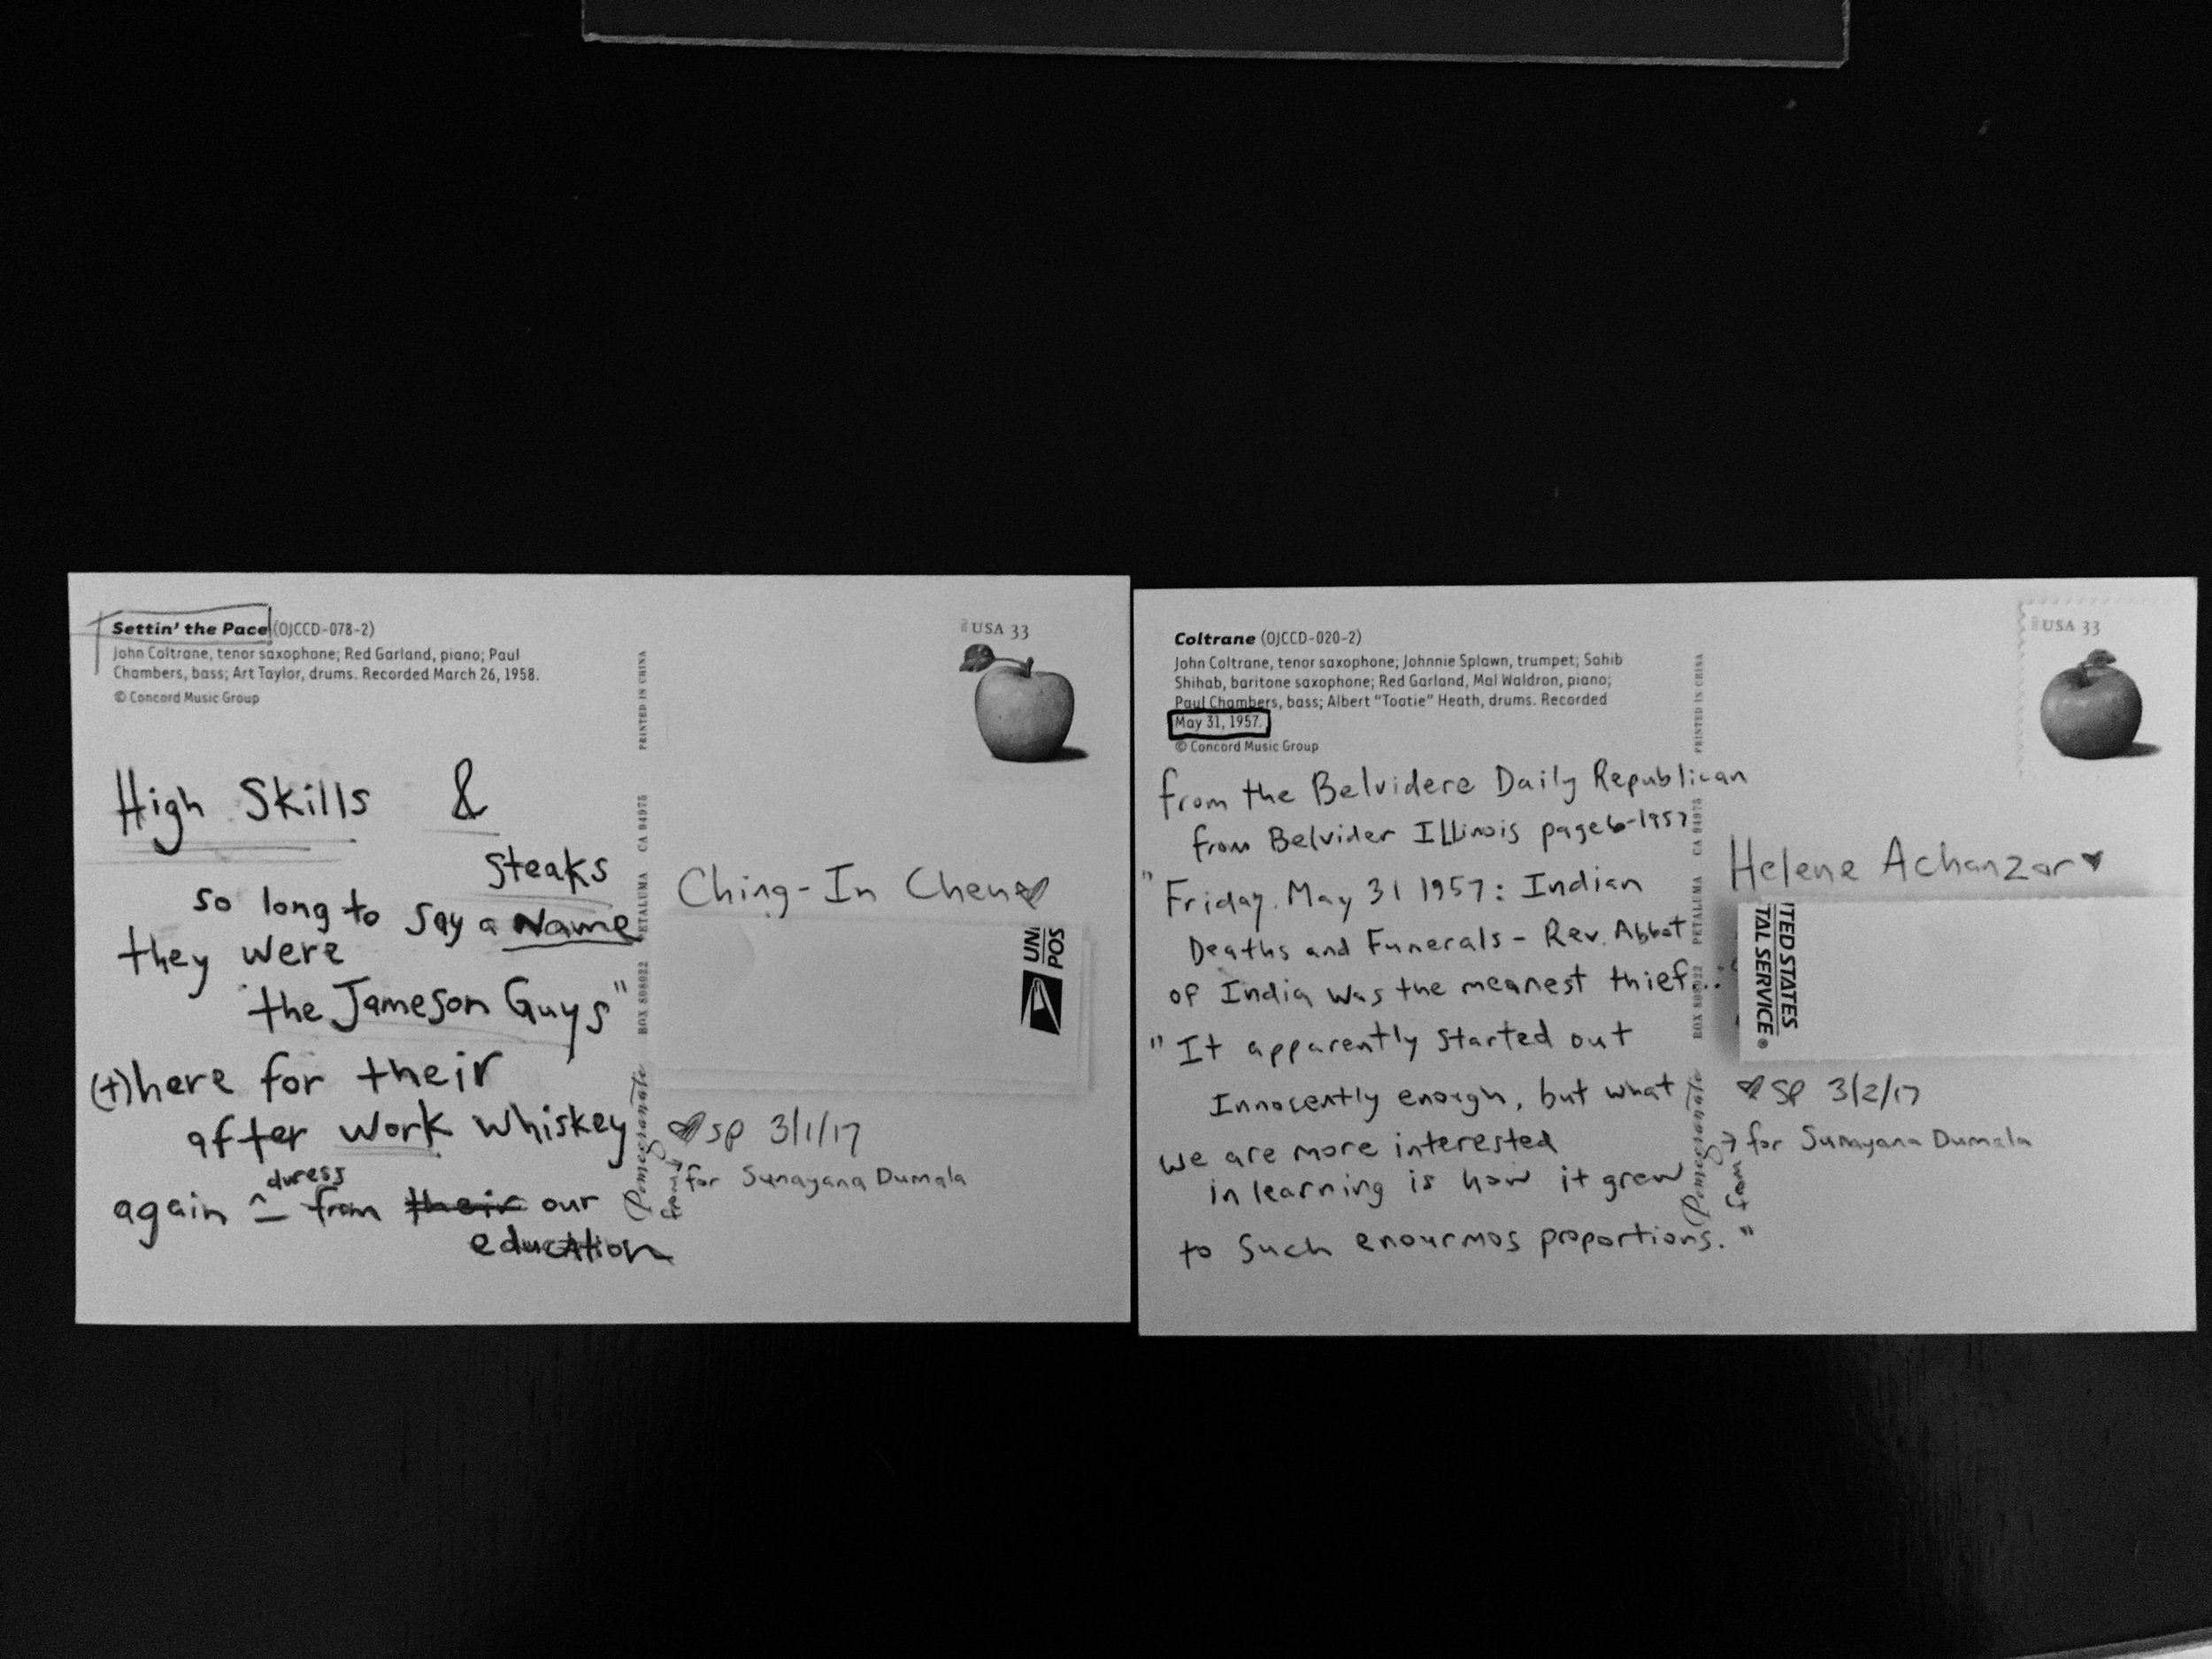 Settin' the Pace (OJCCD-078-2)
John Coltrane, tenor saxophone; Red Garland, piano; Paul
Chambers, bass; Art Taylor, drums. Recorded March 26, 1958.
© Concord Music Group
USA 33
High Skills &
steaks
so long to say a Name
they were
the Jameson Guys"
(t)here for their
after work whiskey
duress
again ^ from their our
education
Pomegranate BOX 808022 PETALUMA CA 94975 PRINTED IN CHINA
Ching-In Chen
UNI
POS
SP 3/1/17
from → for Sunayana Dumala
Coltrane (OJCCD-020-2)
John Coltrane, tenor saxophone; Johnnie Splawn, trumpet; Sahib
Shihab, baritone saxophone; Red Garland, Mal Waldron, piano;
Paul Chambers, bass; Albert "Tootie" Heath, drums. Recorded
May 31, 1957.
© Concord Music Group
USA 33
from the Belvidere Daily Republican
from Belvider ILLinois page 6-1957
"Friday. May 31 1957: Indian
Deaths and Funerals - Rev. Abbot
of India was the meanest thief...
"It apparently started out
Innocently enough, but what
we are more interested
in learning is how it grew
to such enourmos proportions."
Pomegranate BOX 808022 PETALUMA CA 94975 PRINTED IN CHINA
Helene Achanzar
ITED STATES
TAL SERVICE®
SP 3/2/17
from → for Sunayana Dumala